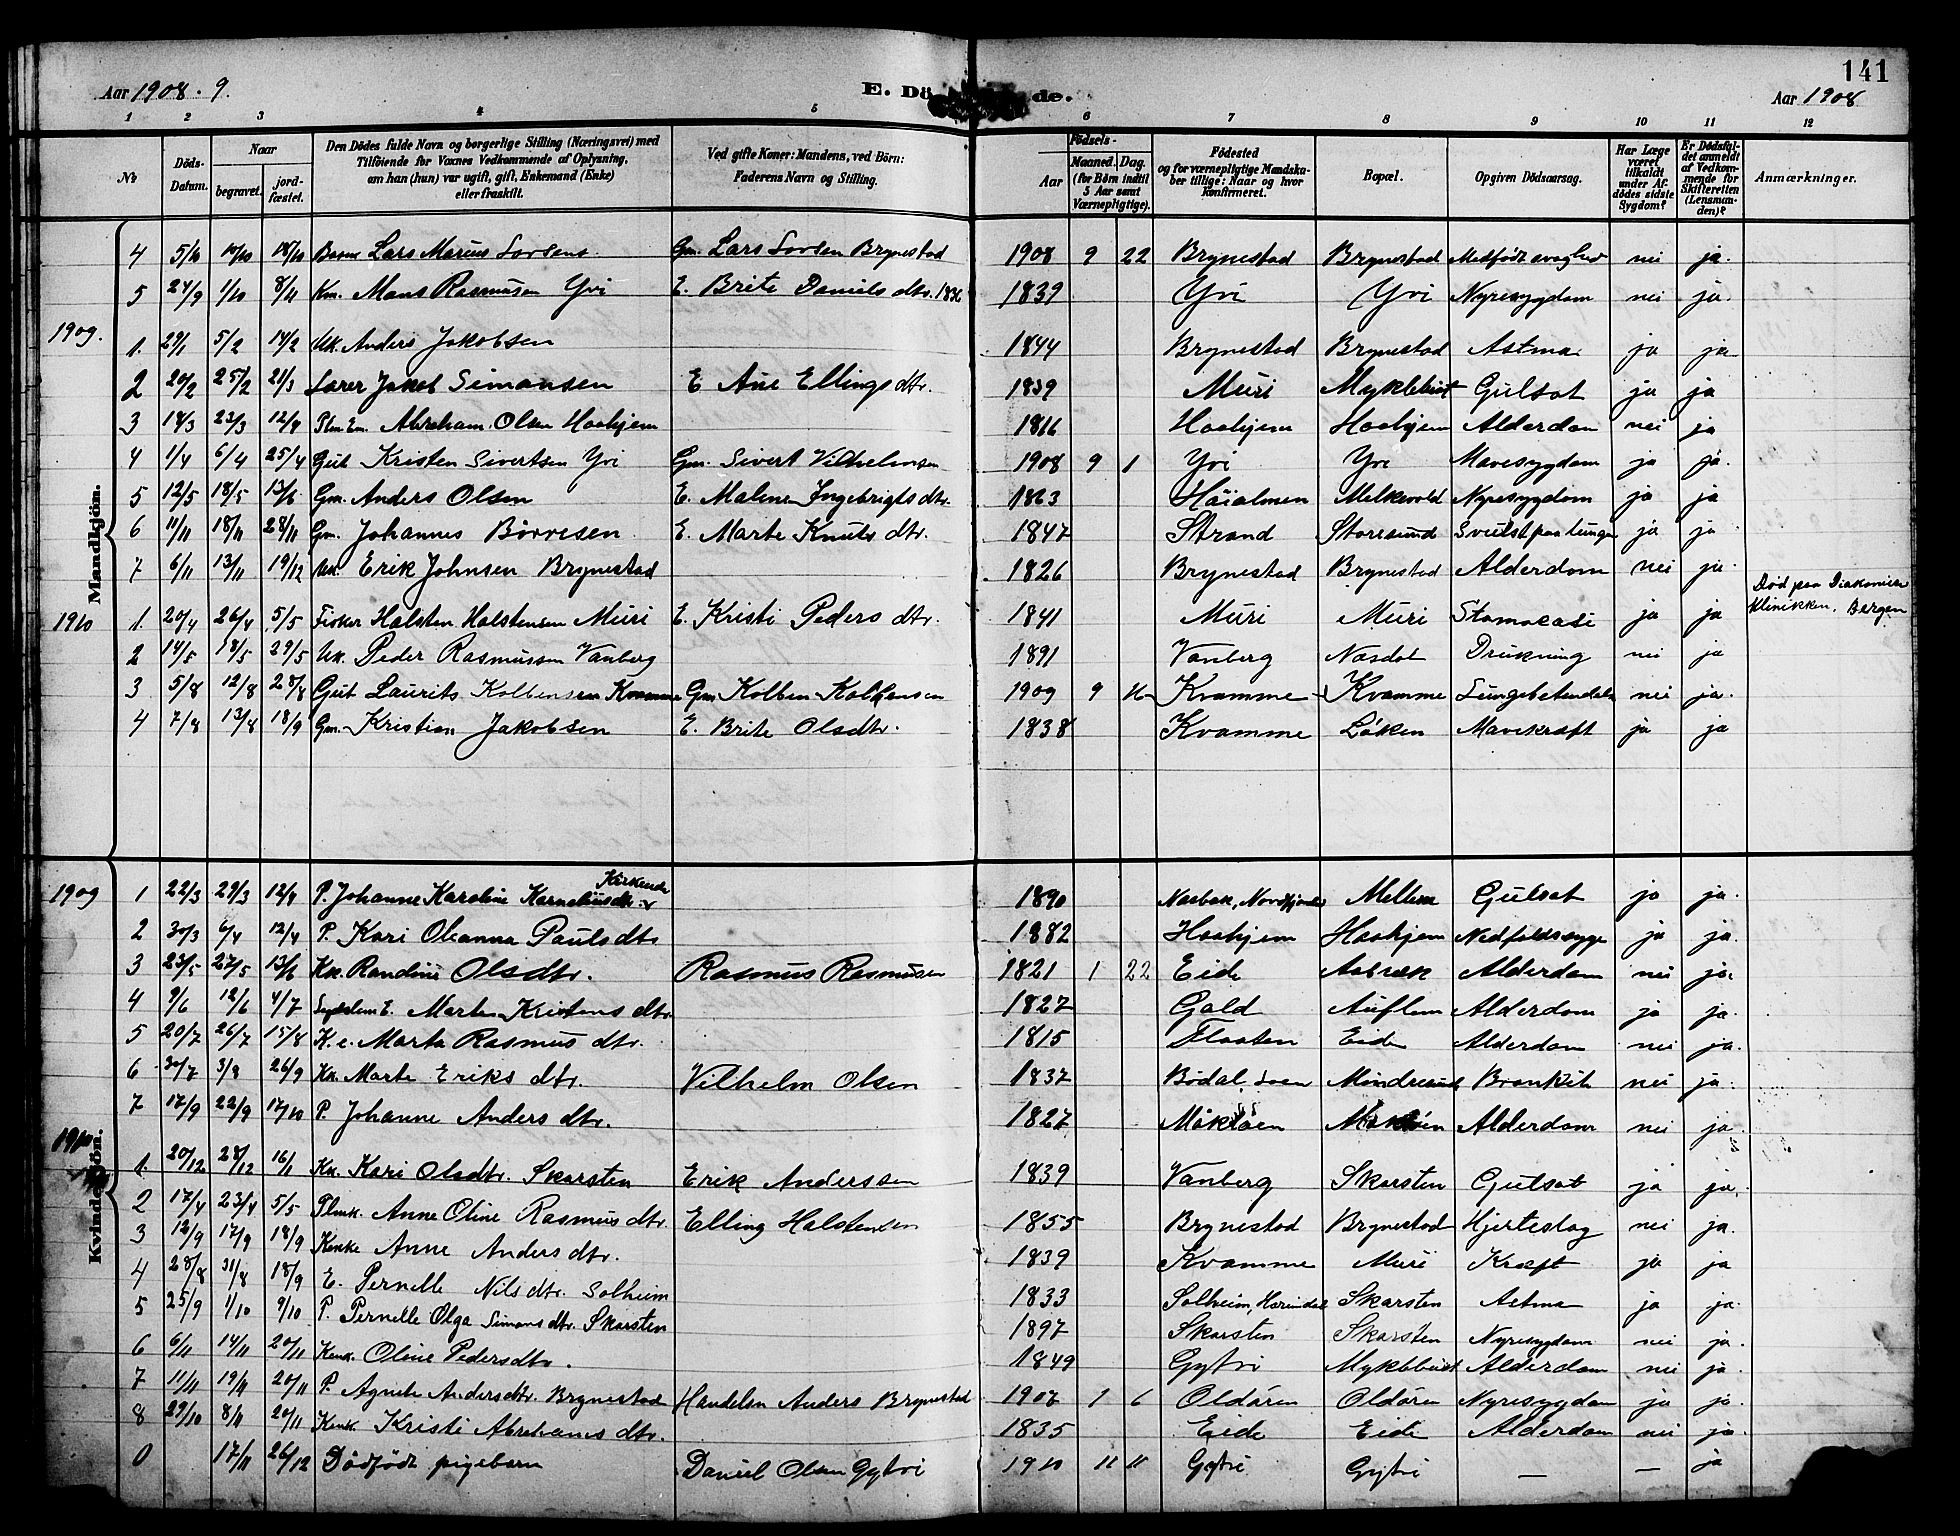 141
Aar 1908. 9. E. Dö de. Aar 1908
1 2 3 4 5 6 7 8 9 10 11 12
No Döds-Datum. Naar begravet. jord-fæstet. Den Dødes fulde Navn og borgerlige Stilling (Næringsvei) med Tilföiende for Voxnes Vedkommende af Oplysning, om han (hun) var ugift, gift, Enkemand (Enke) eller fraskilt. Ved gifte Koner: Mandens, ved Börn: Faderens Navn og Stilling. Födsels- Aar Maaned. Dag. (for Börn indtil 5 Aar samt Værnepligtige). Födested og for værnepligtige Mandskaber tillige: Naar og hvor Konfirmeret. Bopæl. Opgiven Dödsaarsag. Har Læge været tilkaldt under Afdödes sidste Sygdom? Er Dödsfaldet anmeldt af Vedkommende for Skifteretten (Lensmanden)? Anmærkninger.
Mandkjön.
4 5/10 10/10 18/10 Lars Marius Gm. Lars Brynestad 1908 9 22 Brynestad Brynestad Medfødt svaghed nei ja.
5 24/9 1/10 8/11 Km. Mons Rasmusen Yri E. Brite Daniels dtr. 1836 1839 Yri Yri Nyresygdom nei ja.
1909.
1. 29/1 5/2 14/2 Uk. Anders Jakobsen 1844 Brynestad Brynestad Astma ja ja
2 20/2 25/2 21/3 Lærer Jakob Simonsen E Ane Ellings dtr. 1839 Muri Myklebust Gulsot ja ja
3 18/3 23/3 12/4 Plm. Em. Abraham Olsen Haahjem 1816 Haahjem Haahjem Alderdom nei ja
4 1/4 6/4 25/4 Gut Kristen Sivertsen Yri Gm. Sivert Vilhelmsen 1908 9 1 Yri Yri Mavesygdom ja ja.
5 12/5 18/5 13/6 Gm. Anders Olsen E. Malene Ingebrigts dtr. 1863 Häialmen Melkevold Nyresygdom ja ja
6 11/11 18/11 28/11 Gm. Johannes Börresen E. Marte Knuts dtr. 1847 Strand Storesund Svulst paa lunge ja ja
7 6/11 13/11 19/12 Uk. Erik Johnsen Brynestad 1826 Brynestad Brynestad Alderdom nei ja.
1910 1. 20/4 26/4 5/5 Fisker Halsten Halstensen Muri E. Kristi Peders dtr. 1841 Muri Muri ja ja Död paa Diakonisse Klinikken, Bergen
2 14/5 18/5 29/5 Uk. Peder Rasmussen Vanberg 1891 Vanberg Næsdal Drukning nei ja
3 5/8 12/8 28/8 Gut Laurits Kolbensen Kvamme Gm Kolben Kolbensen 1909 9 16 Kvamme Kvamme Lungebetændelse nei ja.
4 7/8 13/8 18/9 Gm. Kristian Jakobsen E. Brite Olsdtr. 1838 Kvamme Löken Mavekræft ja ja
Kvindekjön.
1909 1 22/3 29/3 12/4 P. Johanne Karoline Korneliusdtr. 1890 Nordfjord Mellem Gulsot ja ja.
2 30/3 6/4 12/4 P. Kari Oleanna Pauls dtr 1882 Haahjem Haahjem Nedfaldssyge ja ja.
3 23/5 27/5 13/6 Kk. Randine Olsdtr. Rasmus Rasmusen 1821 1 22 Eide Aabrek Alderdom nei ja.
4 9/6 12/6 4/7 E. Marte Kristens dtr. 1827 Gald Auflem Alderdom ja ja.
5 20/7 26/7 15/8 K. e. Marta Rasmus dtr. 1815 Flaaten Eide Alderdom nei ja.
6 30/7 3/8 26/9 Kk. Marte Eriks dtr. Vilhelm Olsen 1837 Bødal, Loen Mindresund Bronkit nei ja.
7 17/9 22/9 17/10 P. Johanne Anders dtr. 1827 Möklöen Möklöen Alderdom nei ja
1910 1. 20/12 28/12 16/1 Kk. Kari Olsdtr. Skarsten Erik Anderssen 1839 Vanberg Skarsten Gulsot ja ja.
2 17/4 23/4 5/5 Plmk. Anne Oline Rasmus dtr. Elling Halstensen 1855 Brynestad Brynestad Hjerteslag nei ja.
3 12/9 17/9 18/9 Kenke Anne Anders dtr. 1839 Kvamme Muri Kræft ja ja
4 28/8 31/8 18/9 E. Pernelle Nils dtr. Solheim 1833 Solheim, Skarsten Astma ja ja.
5 25/9 1/10 9/10 P. Pernelle Olga Simons dtr. Skarsten 1897 Skarsten Skarsten Nyresygdom nei ja.
6 6/11 14/11 20/11 Kenk. Oline Pedersdtr. 1849 Gytri Myklebust Alderdom nei ja.
7 11/11 19/11 20/11 P. Agnete Andersdtr. Brynestad Handelsm Anders Brynestad 1907 1 6 Oldören Oldören Nyresygdom ja ja.
8 29/10 8/11 20/11 Kenk. Kristi Abrahams dtr. 1835 Eide Eide Alderdom nei ja.
0 17/11 26/12 Dödfödt pigebarn Daniel Olsen Gytri 1910 11 11 Gytri Gytri — — ja